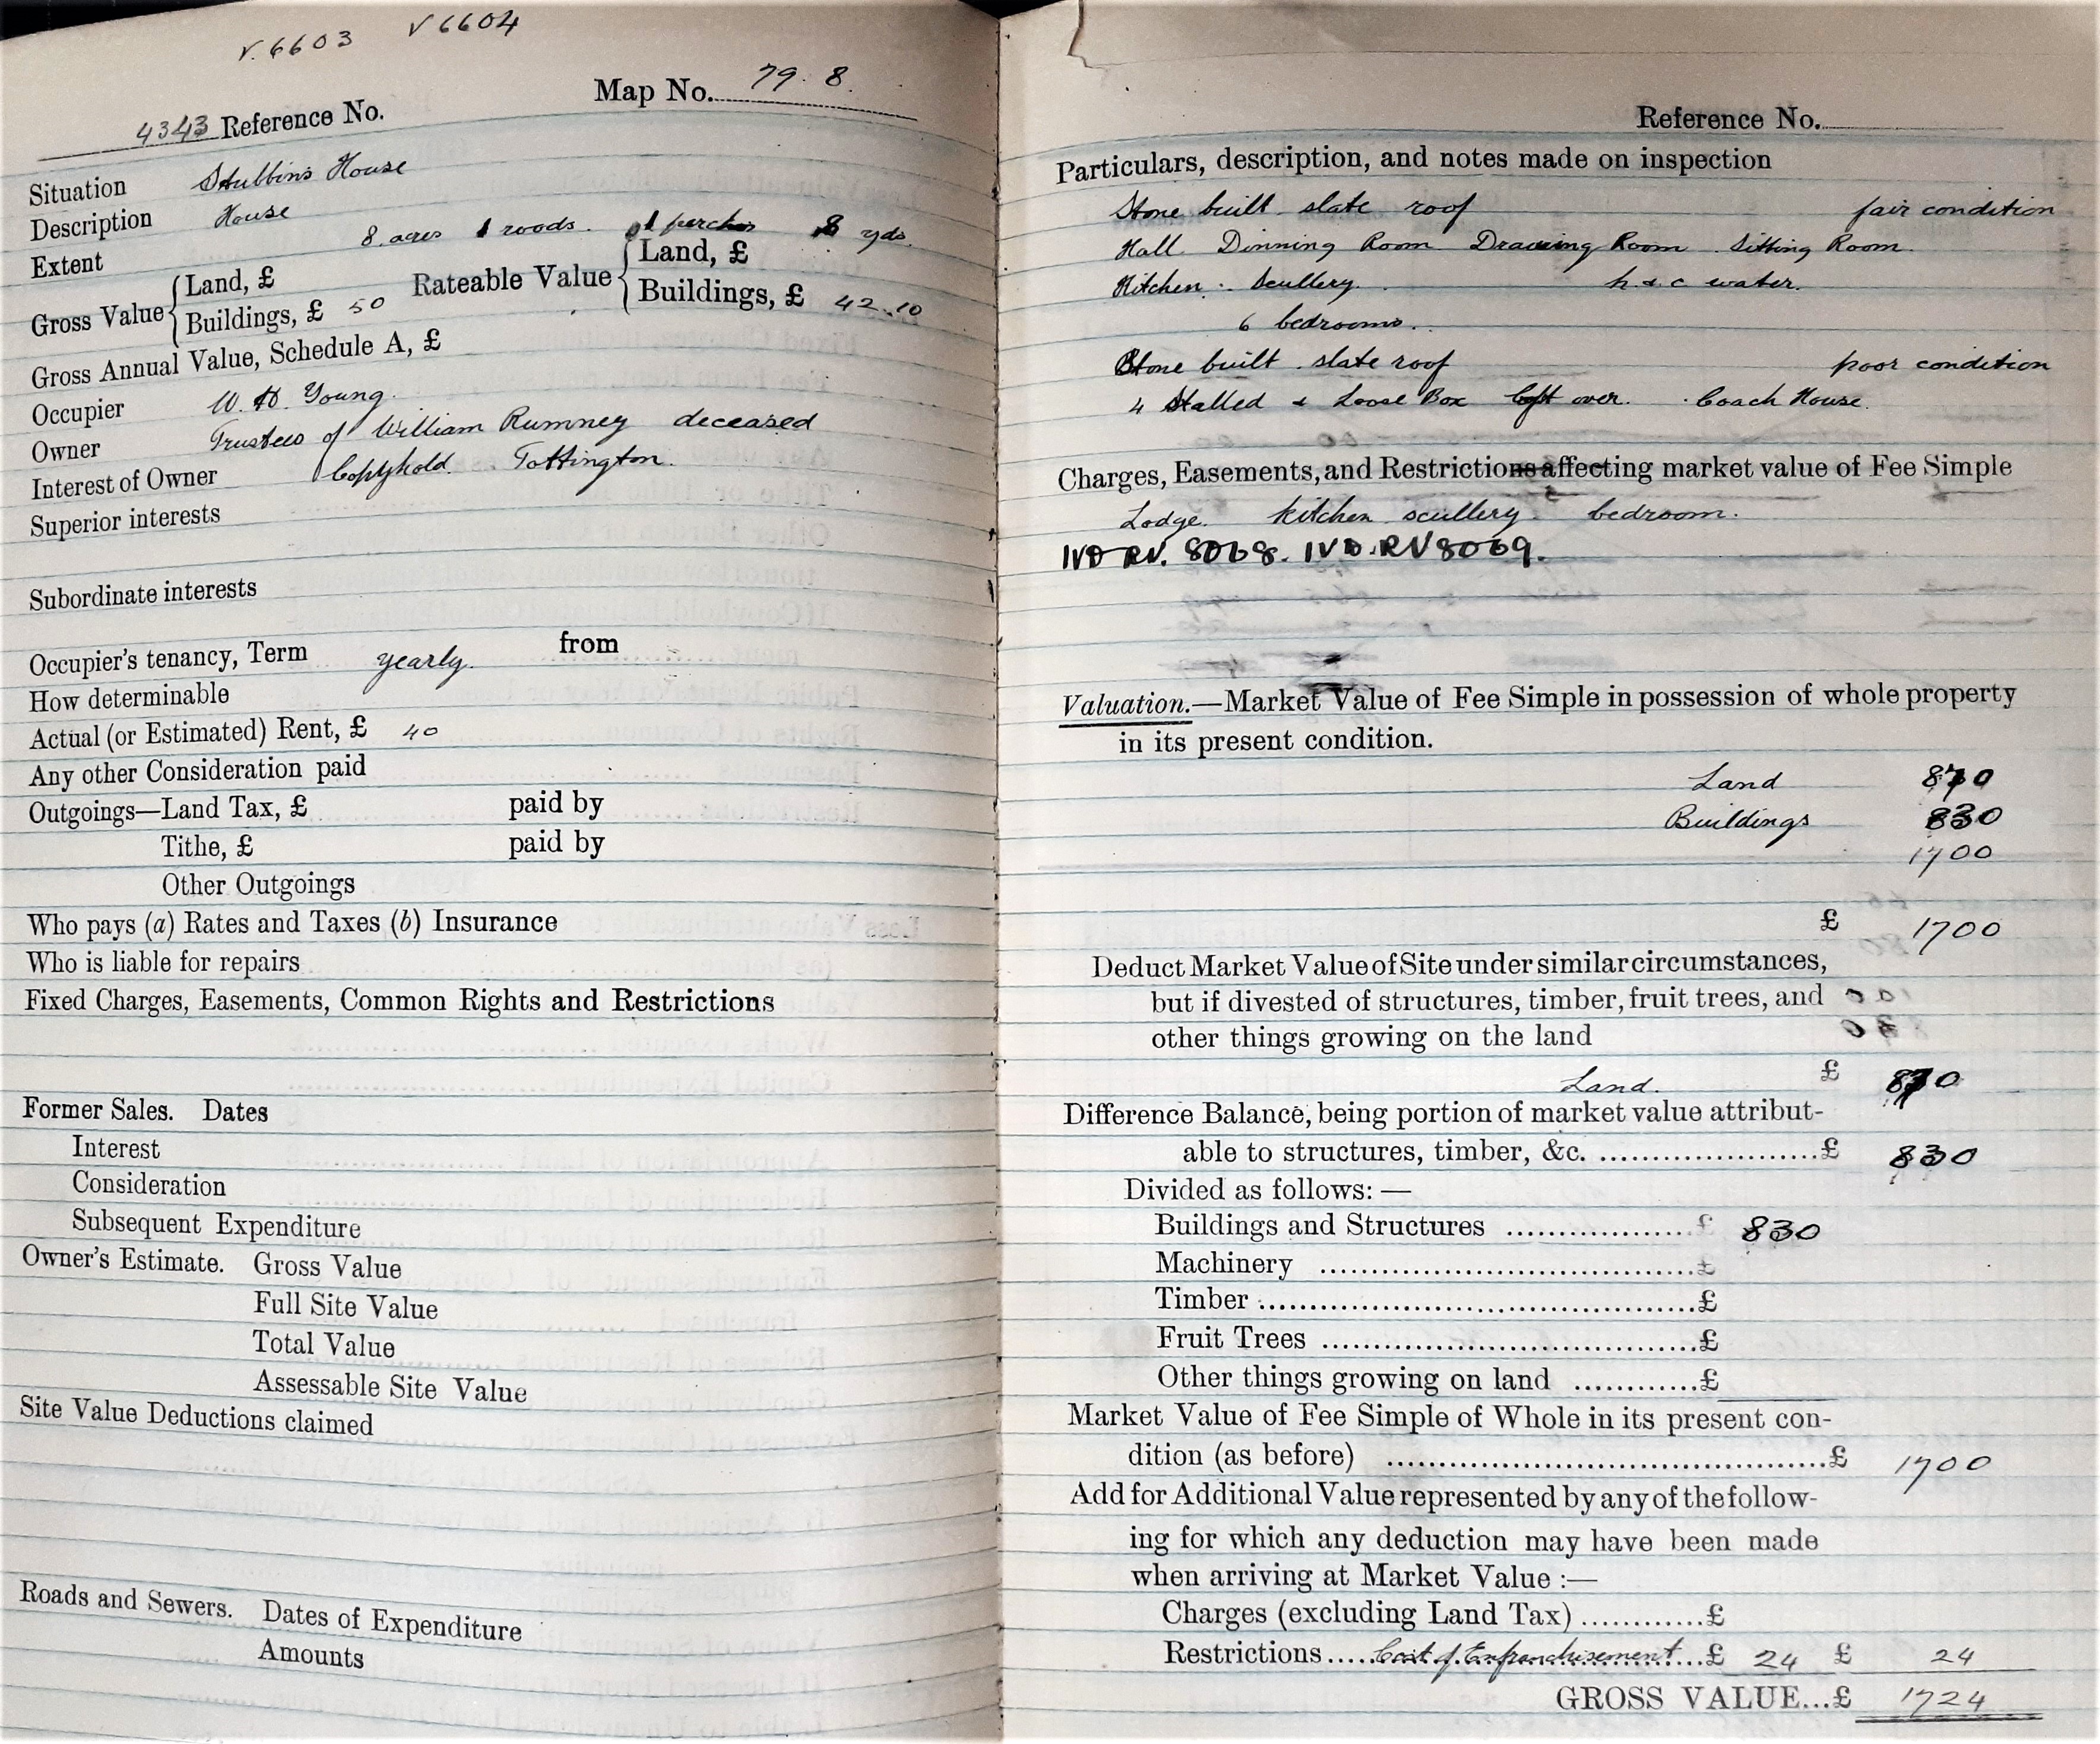 V. 6603 V 6604
Map No. 79. 8.
4343 Reference No.
Situation Stubbins House
Description House
Extent 8 acres 1 roods. 1 perches 8 yds.
Gross Value { Land, £
Buildings, £ 50
Rateable Value { Land, £
Buildings, £ 42.10
Gross Annual Value, Schedule A, £
Occupier W. H. Young.
Owner Trustees of William Rumney deceased
Interest of Owner Copyhold. Tottington.
Superior interests
Subordinate interests
Occupier's tenancy, Term yearly. from
How determinable
Actual (or Estimated) Rent, £ 40
Any other Consideration paid
Outgoings—Land Tax, £ paid by
Tithe, £ paid by
Other Outgoings
Who pays (a) Rates and Taxes (b) Insurance
Who is liable for repairs
Fixed Charges, Easements, Common Rights and Restrictions
Former Sales. Dates
Interest
Consideration
Subsequent Expenditure
Owner's Estimate. Gross Value
Full Site Value
Total Value
Assessable Site Value
Site Value Deductions claimed
Roads and Sewers. Dates of Expenditure
Amounts
Reference No.
Particulars, description, and notes made on inspection
Stone built. slate roof fair condition
Hall. Dinning Room Drawing Room. Sitting Room.
Kitchen. Scullery. h & c water.
6 bedrooms.
Stone built. slate roof poor condition
4 Stalled & Loose Box loft over. Coach House.
Charges, Easements, and Restrictions affecting market value of Fee Simple
Lodge. kitchen scullery. bedroom.
IVD RV. 8068. IVD. RV 8069.
Valuation.—Market Value of Fee Simple in possession of whole property
in its present condition.
Land 870
Buildings 830
1700
£ 1700
Deduct Market Value of Site under similar circumstances,
but if divested of structures, timber, fruit trees, and
other things growing on the land
Land. £ 870
Difference Balance, being portion of market value attribut-
able to structures, timber, &c. ....................£ 830
Divided as follows: —
Buildings and Structures ..................£ 830
Machinery ....................................£
Timber..........................................£
Fruit Trees ....................................£
Other things growing on land ............£
Market Value of Fee Simple of Whole in its present con-
dition (as before) ..........................................£ 1700
Add for Additional Value represented by any of the follow-
ing for which any deduction may have been made
when arriving at Market Value :—
Charges (excluding Land Tax)............£
Restrictions.....Cost of Enfranchisement...£ 24 £ 24
GROSS VALUE...£ 1724